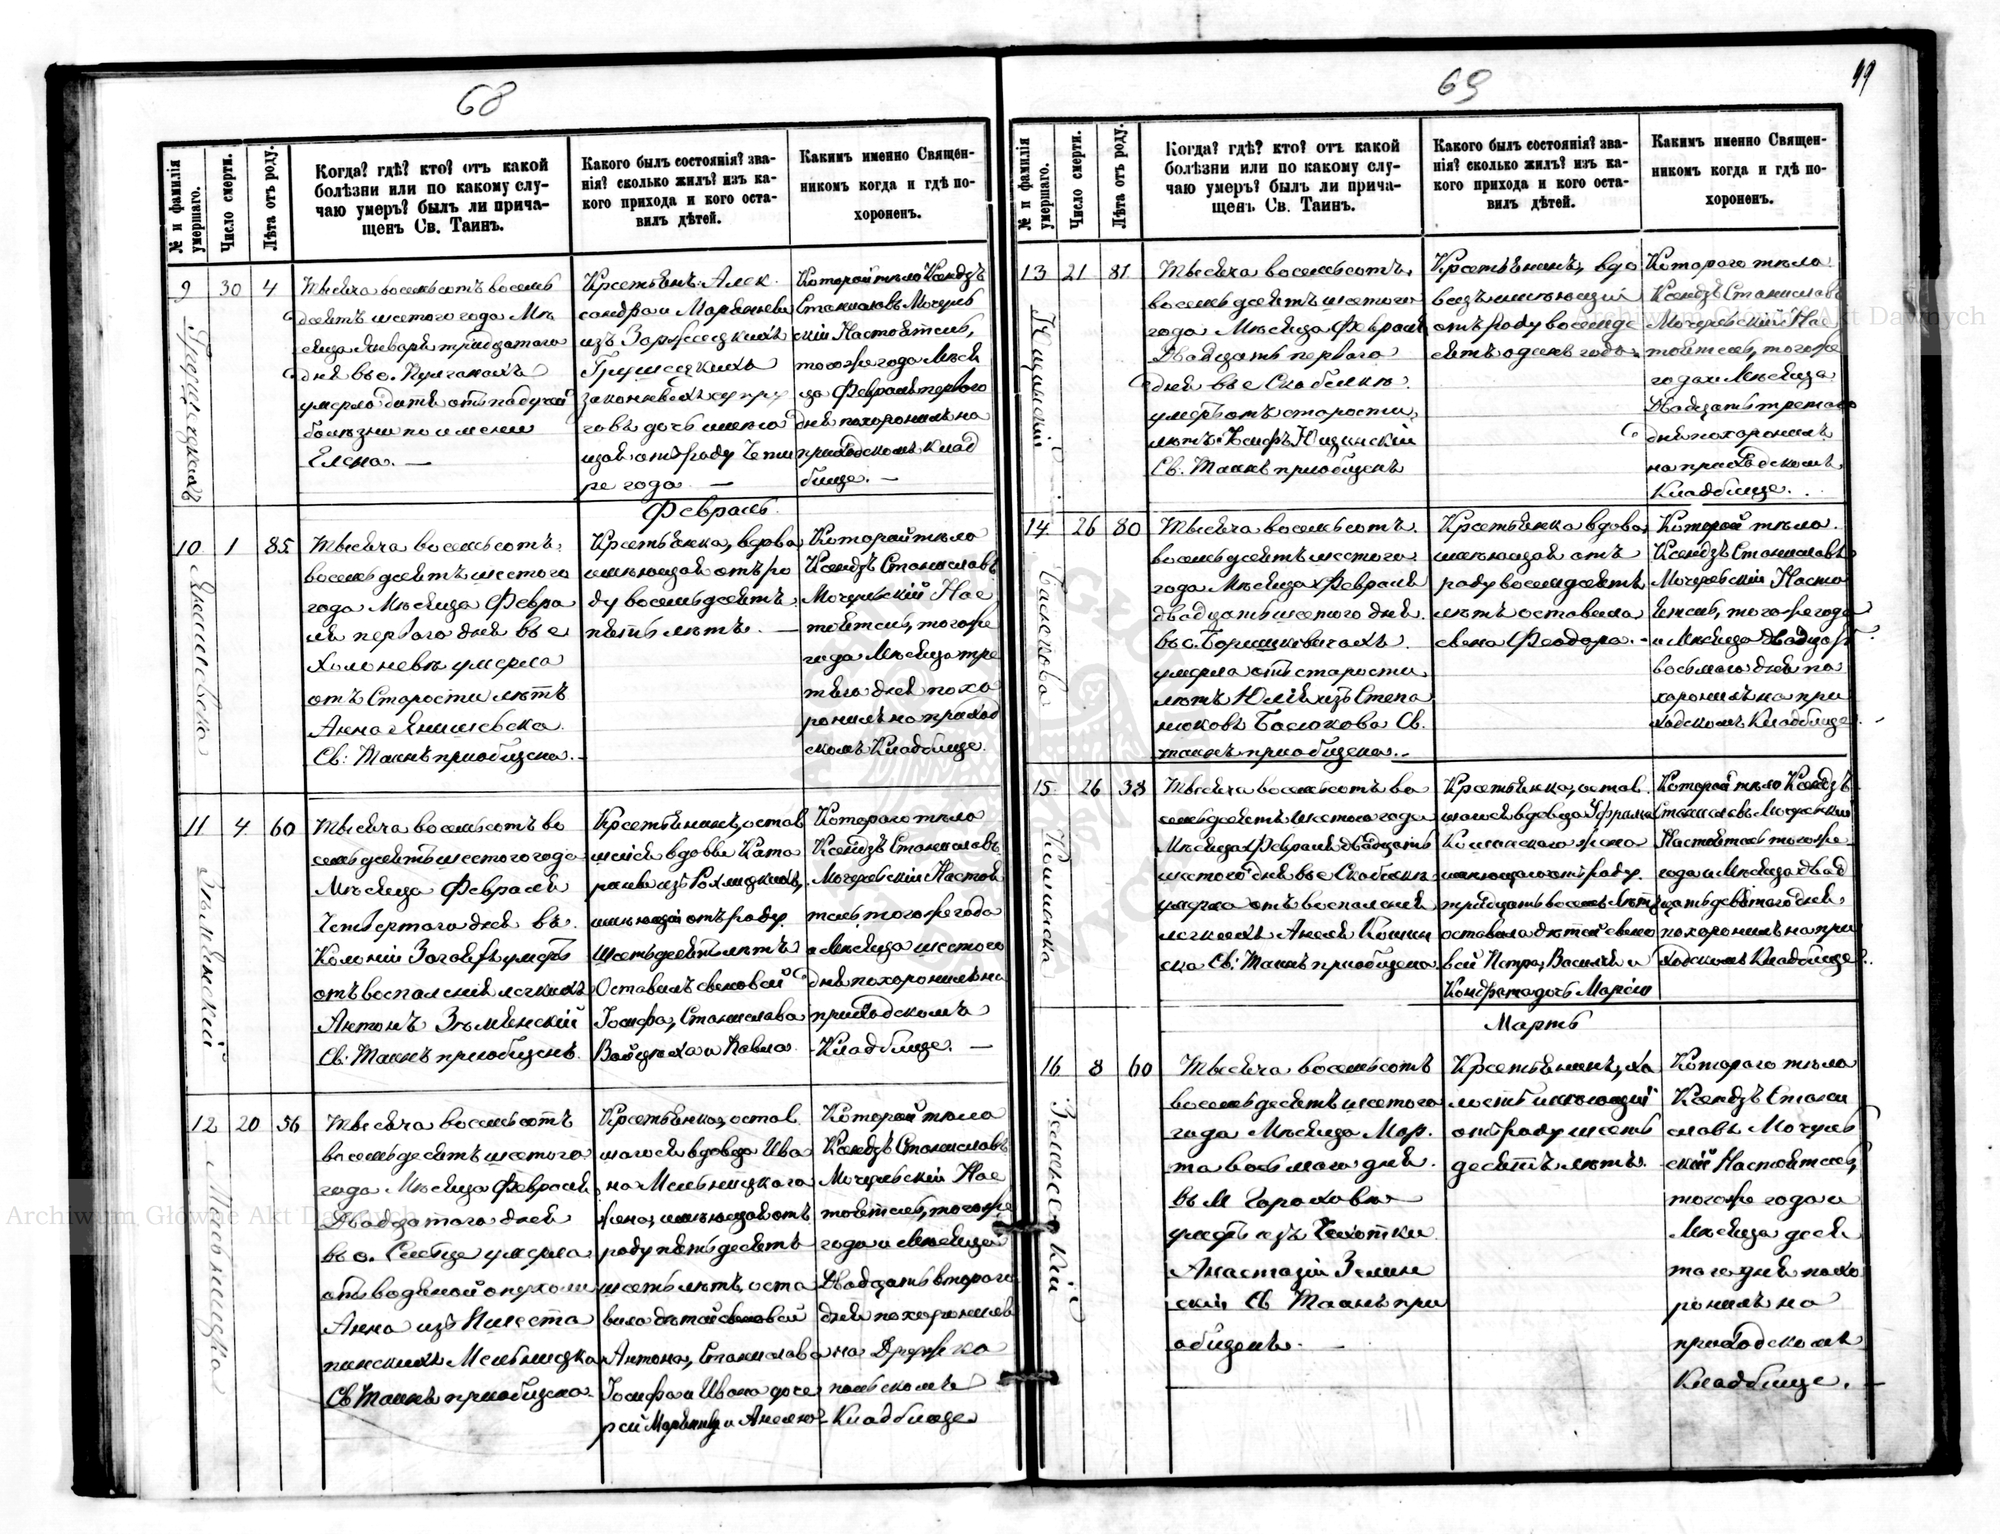 68
№ и фамилія умершаго.
Число смерти.
Лѣта отъ роду.
Когда? гдѣ? кто? отъ какой
болѣзни или по какому слу-
чаю умеръ? былъ ли прича-
щенъ Св. Таинъ.
Какого былъ состоянія? зва-
нія? сколько жилъ? изъ ка-
кого прихода и кого оста-
вилъ дѣтей.
Какимъ именно Священ-
никомъ когда и гдѣ по-
хороненъ.
9
30
4
Тысяча восемьсотъ восемь
десятъ шестого года Мѣ
сяца Января тридцатого
дня въ с.
умерло дитя отъ падучей
болѣзни по имени
Елена. —
Крестьянъ Алек
сандра и Марьянны
изъ
законныхъ супру
говъ дочь имѣю
щая отъ роду четы
ре года —
Которой тѣло Ксендзъ
Станиславъ Мочуль
скій Настоятель,
того же года Мѣся
ца Февраля перваго
дня похоронилъ на
приходскомъ клад
бище. —
Февраль.
10
1
85
Янишевска
Тысяча восемьсотъ
восемьдесятъ шестого
года Мѣсяца Февра
ля перваго дня въ с
Холоневѣ умерла
отъ Старости лѣтъ
Анна Янишевска
Св: Таинъ приобщена. —
Крестьянка, вдова
имѣющая отъ ро
ду восемьдесятъ
пять лѣтъ. —
Которой тѣло
Ксендзъ Станиславъ
Мочульскій Нас
тоятель, того же
года Мѣсяца тре
тяго дня похо
ронилъ на приход
скомъ Кладбище.
11
4
60
Тысяча восемьсотъ во
семьдесятъ шестого года
Мѣсяца Февраля
Четвертаго дня въ
Колоніи умеръ
отъ воспаленія легкихъ
Антонъ
Св: Таинъ приобщенъ.
Крестьянинъ, остав
шійся вдовы Ката
рины изъ
имѣющій отъ роду
Шестьдесятъ лѣтъ
Оставилъ сыновей
Іосифа, Станислава
Войцѣха и Павла
Котораго тѣло
Ксендзъ Станиславъ
Мочульскій Настоя
тель того же года
и Мѣсяца шестого
дня похоронилъ на
приходскомъ
Кладбище. —
12
20
56
Мельницка
Тысяча восемьсотъ
восемьдесятъ шестого
года Мѣсяца Февраля
Двадцатого дня
въ с. умерла
отъ водяной опухоли
Анна изъ
Мельницка
Св Таинъ приобщена
Крестьянка, остав
шагося вдовца Ива
на Мельницкаго
жена, имѣющая отъ
роду пятьдесятъ
шесть лѣтъ, оста
вила дѣтей сыновей
Антона, Станислава
Іосифа и Ивана доче
рей Марьянну и Анелю
Которой тѣло
Ксендзъ Станиславъ
Мочульскій Нас
тоятель, того же
года и Мѣсяца
Двадцать второго
дня похоронилъ
на Дружко
польскомъ
Кладбище
69
99
№ и фамилія умершаго.
Число смерти.
Лѣта отъ роду.
Когда? гдѣ? кто? отъ какой
болѣзни или по какому слу-
чаю умеръ? былъ ли прича-
щенъ Св. Таинъ.
Какого былъ состоянія? зва-
нія? сколько жилъ? изъ ка-
кого прихода и кого оста-
вилъ дѣтей.
Какимъ именно Священ-
никомъ когда и гдѣ по-
хороненъ.
13
21
81
Ющинскій
Тысяча восемьсотъ
восемьдесятъ шестого
года Мѣсяца Февраля
Двадцать перваго
дня въ с Скобелкѣ
умеръ отъ старости
лѣтъ Іосифъ Ющинскій
Св. Таинъ приобщенъ
Крестьянинъ, вдо
вецъ имѣющій
отъ роду восемьде
сятъ одинъ годъ
Котораго тѣло
Ксендзъ Станиславъ
Мочульскій Нас
тоятель, того же
года и Мѣсяца
Двадцать третаго
дня похоронилъ
на приходскомъ
Кладбище.
14
26
80
Басюкова
Тысяча восемьсотъ
восемьдесятъ шестого
года Мѣсяца Февраля
двадцать шестого дня
въ с. Борисковичахъ
умерла отъ старости
лѣтъ Юлія изъ Степа
нюковъ Басюкова Св.
таинъ приобщена. —
Крестьянка вдова,
имѣющая отъ
роду восемьдесятъ
лѣтъ оставила
сына Феодора. —
Которой тѣло
Ксендзъ Станиславъ
Мочульскій Насто
ятель, того же года
и Мѣсяца двадцать
восьмаго дня по
хоронилъ на при
ходскомъ Кладбище.
15
26
38
Кошинска
Тысяча восемьсотъ во
семьдесятъ шестого года
Мѣсяца Февраля двадцать
шестого дня въ с Скобелкѣ
умерла отъ воспаленія
легкихъ Анеля Кошин
ска Св: Таинъ приобщена
Крестьянка, остав
шагося вдовца
Кошинского жена
имѣющая отъ роду
тридцать восемь лѣтъ
оставила дѣтей сыно
вей Петра, Василія и
Кондрата дочь Марію
Которой тѣло Ксендзъ
Станиславъ Мочульскій
Настоятель того же
года и Мѣсяца двад
цать девятого дня
похоронилъ на при
ходскомъ Кладбище.
Мартъ
16
8
60
Зелинскій
Тысяча восемьсотъ
восемьдесятъ шестого
года Мѣсяца Мар
та восьмаго дня
въ М Гороховѣ
умеръ изъ Чахотки
Анастазій Зелин
скій Св Таинъ при
общенъ. —
Крестьянинъ, хо
лостъ имѣющій
отъ роду шесть
десятъ лѣтъ.
Котораго тѣло
Ксендзъ Стани
славъ Мочуль
скій Настоятель,
того же года и
Мѣсяца деся
таго дня похо
ронилъ на
приходскомъ
Кладбище. —
Archiwum Główne Akt Dawnych
Archiwum Główne Akt Dawnych